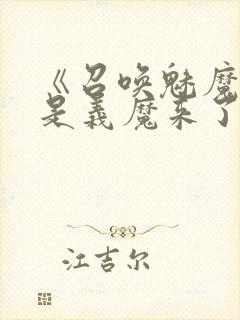 《召唤魅魔
是义魔来了
江吉尔